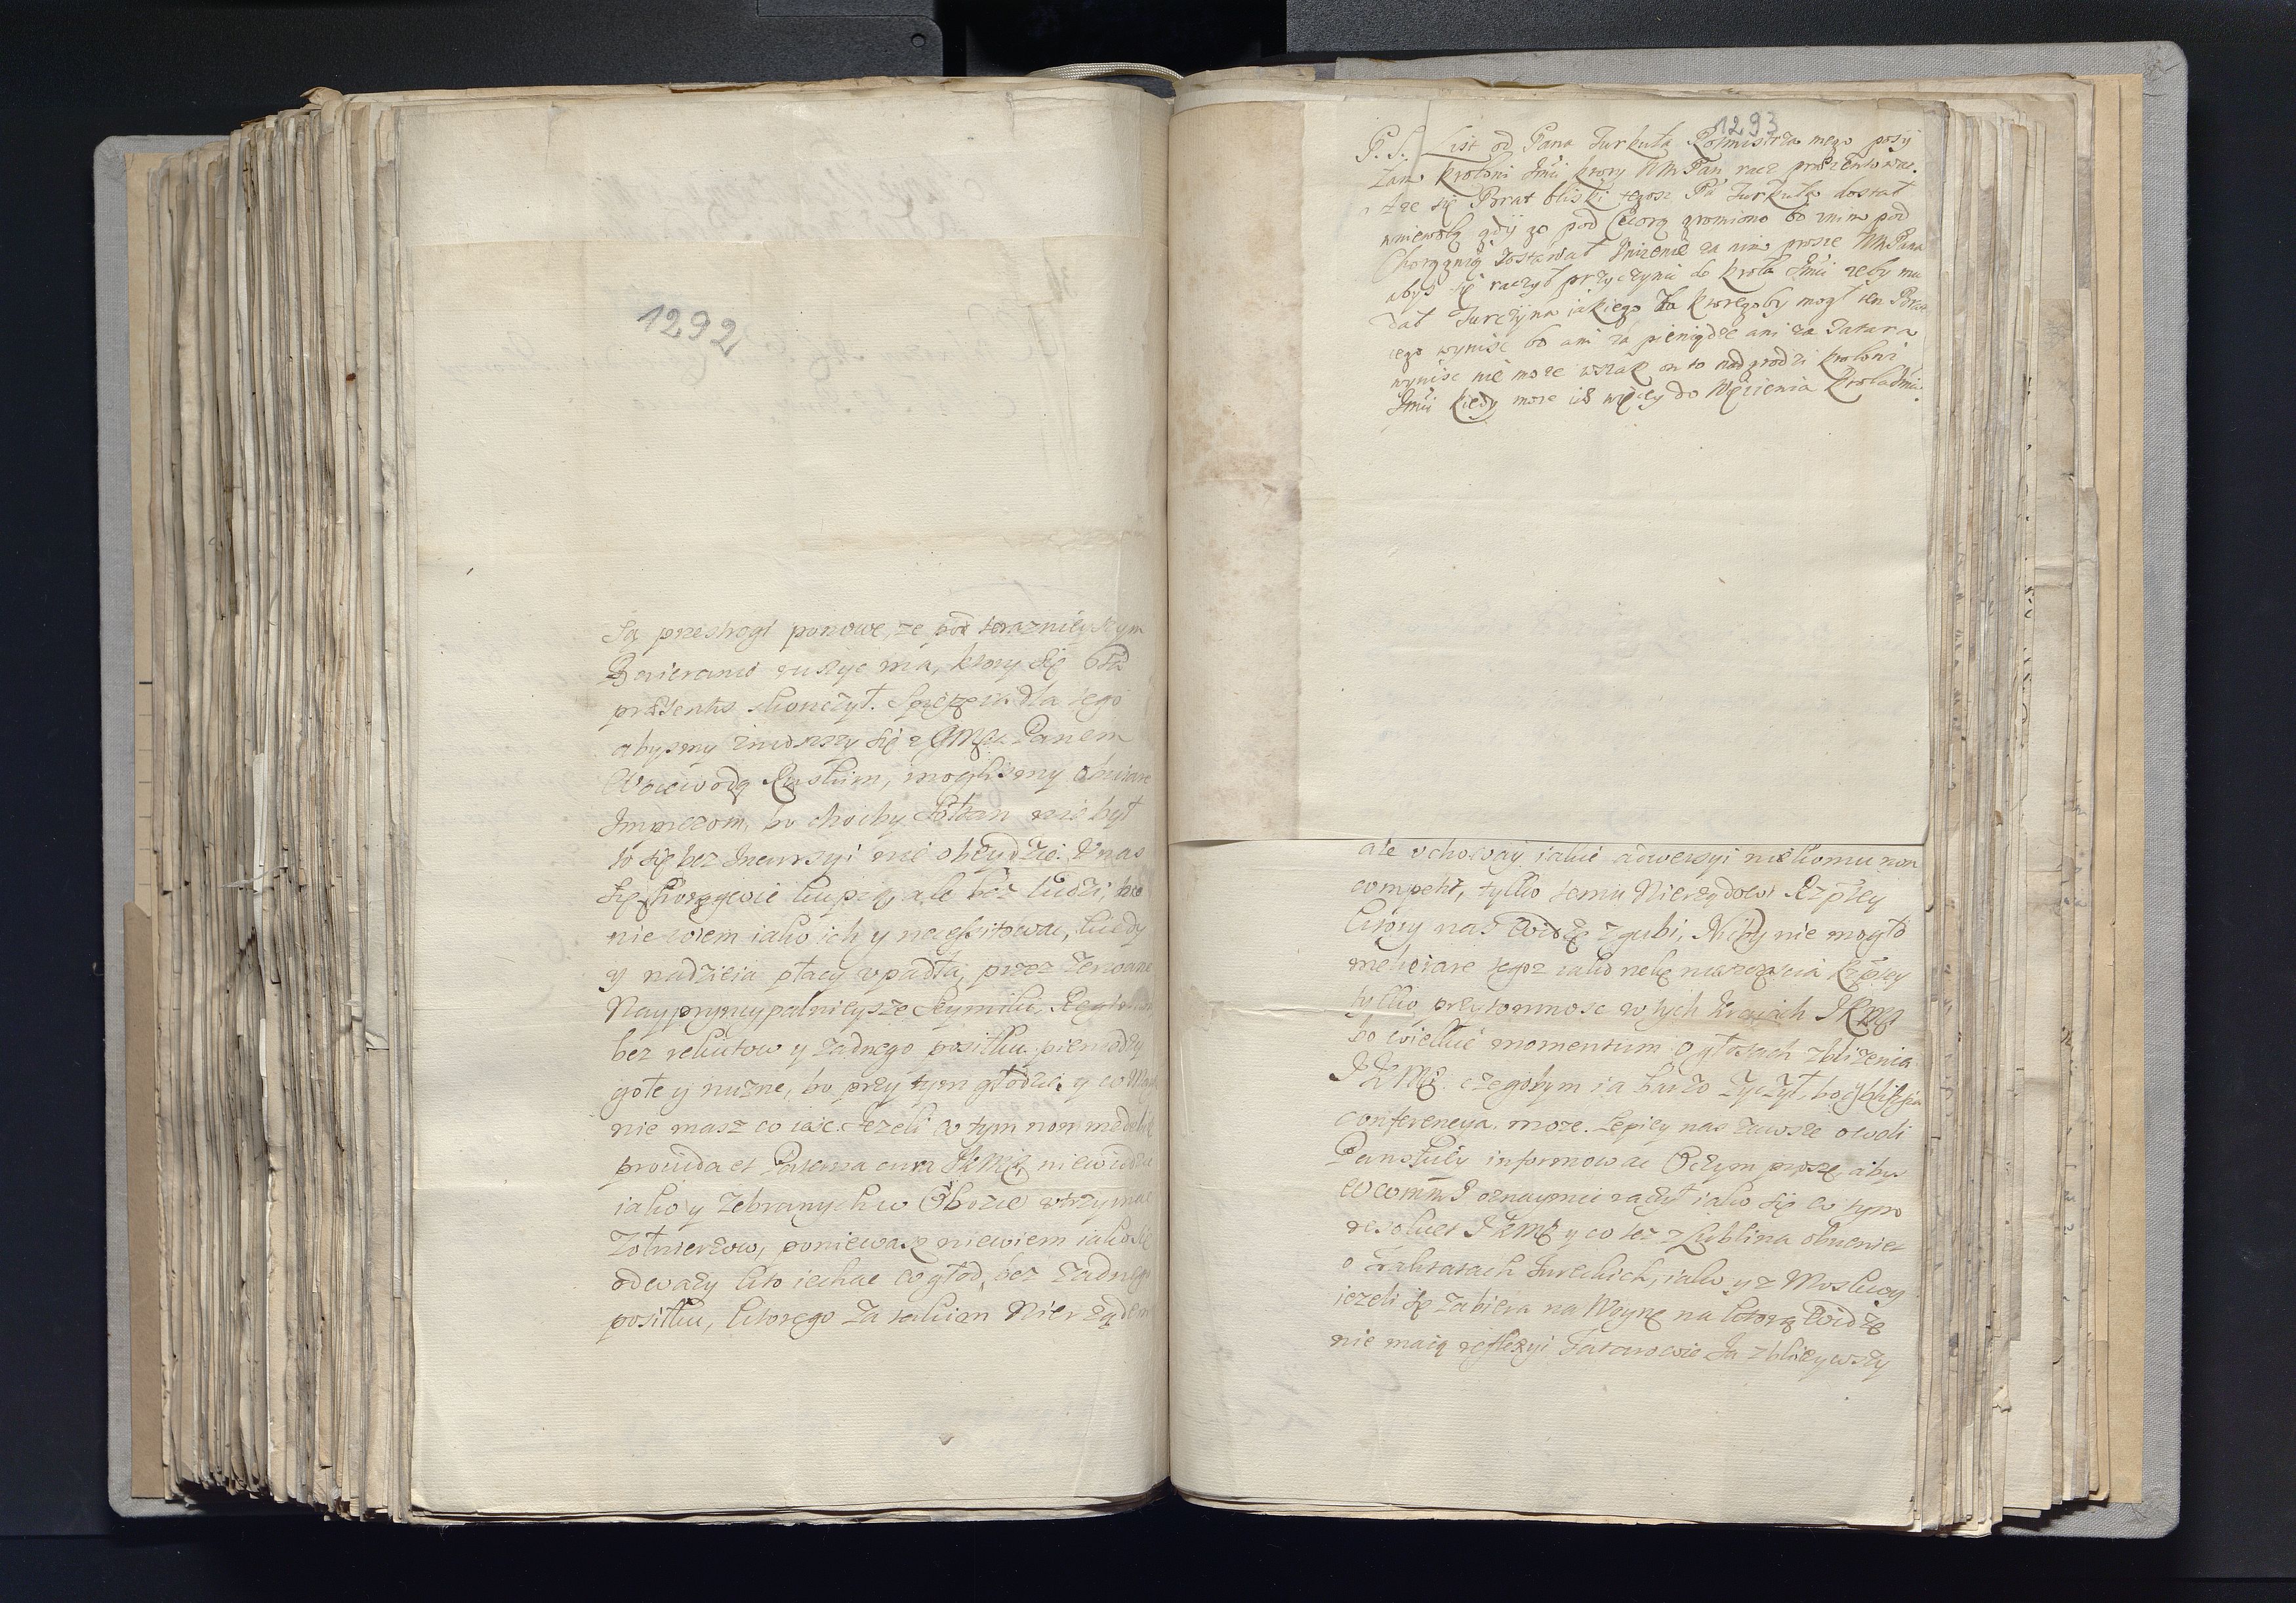 1292
Są przestrogi ponowe, ze pod teraznieyszym
Bayramu ruszyc ma, ktory się
præsentis skonczył. Spieszę dla tego
abysmy zniosszy się z JMP. Panem
Woiewodą Ruskim, moglismy obviare
Imprezom, bo chocby Sołtan nie był
to się bez Incursyi nie obeydzie. U nas
się Chorągwie kupią, ale bez ludzi,
nie wiem iako ich y negłitowac, kiedy
y nadzieia płacy upadła, przez zerwane
Naypryncypalnieysze Seymiki, Regimenta
bez rekrutow y zadnego posiłku pieniędzy
gołe y nuzne, bo przy tym głodzie y co
nie masz co iesc. Jezeli w tym non
provida et Paterna cura JKMci, niewidzę
iako y zebranych w Obozie utrzymac
Zołnierzow, poniewasz niewiem iako się
odwazy kto iechac w głod, bez zadnego
posiłku, ktorego za takim Nierządem
1293
P. S. List od Pana Turkuła Rotmistrza mego posy
łam Krolowi Jmci ktory WMPan racz prezentowac.
ze się Brat bliski tegosz Pa Turkuła dostał
w niewolą gdy go pod Cecorą gromiono bo znim pod
Chorągnią zostawał Unizenie za nim proszę WMPana
abys się raczył przyczynic do Krola Jmci zeby mu
dał Turczyna iakiego za ktoregoby mogł ten Brat
iego wynisc bo ani za pieniądze ani za Tatara
wynisc nie moze wszak on to nadgrodzi Krolowi
Jmci kiedy moze ich więcey do Więzienia Krola Jmci.
ale uchoway iakie adwersyi nikomu non
competit, tylko temu Nierządowi Rzptey
ktory nas widzę zgubi, Nigdy nie mogło
meliorare tego iako nelę nieszczęscia Rzptey
tylko przytomnosc w tych kraiach JKMci
bo wielkie momentum o głosach zblizenia
JKMci. czegobym ia barzo zyczył, bo y blisza
conferencya moze lepiey nas zawsze o woli
Panskiey informowac O czym proszę, abys
WMM P oznaymic raczył iako się w tym
resolvet JKMć y co tez z Lublina obueniet
o Traktatach Tureckich, iako y z Moskwy
iezeli się zabiera na Woynę na ktorą widzę
nie maią reflexyi Tatarowie Ja zblizywszy